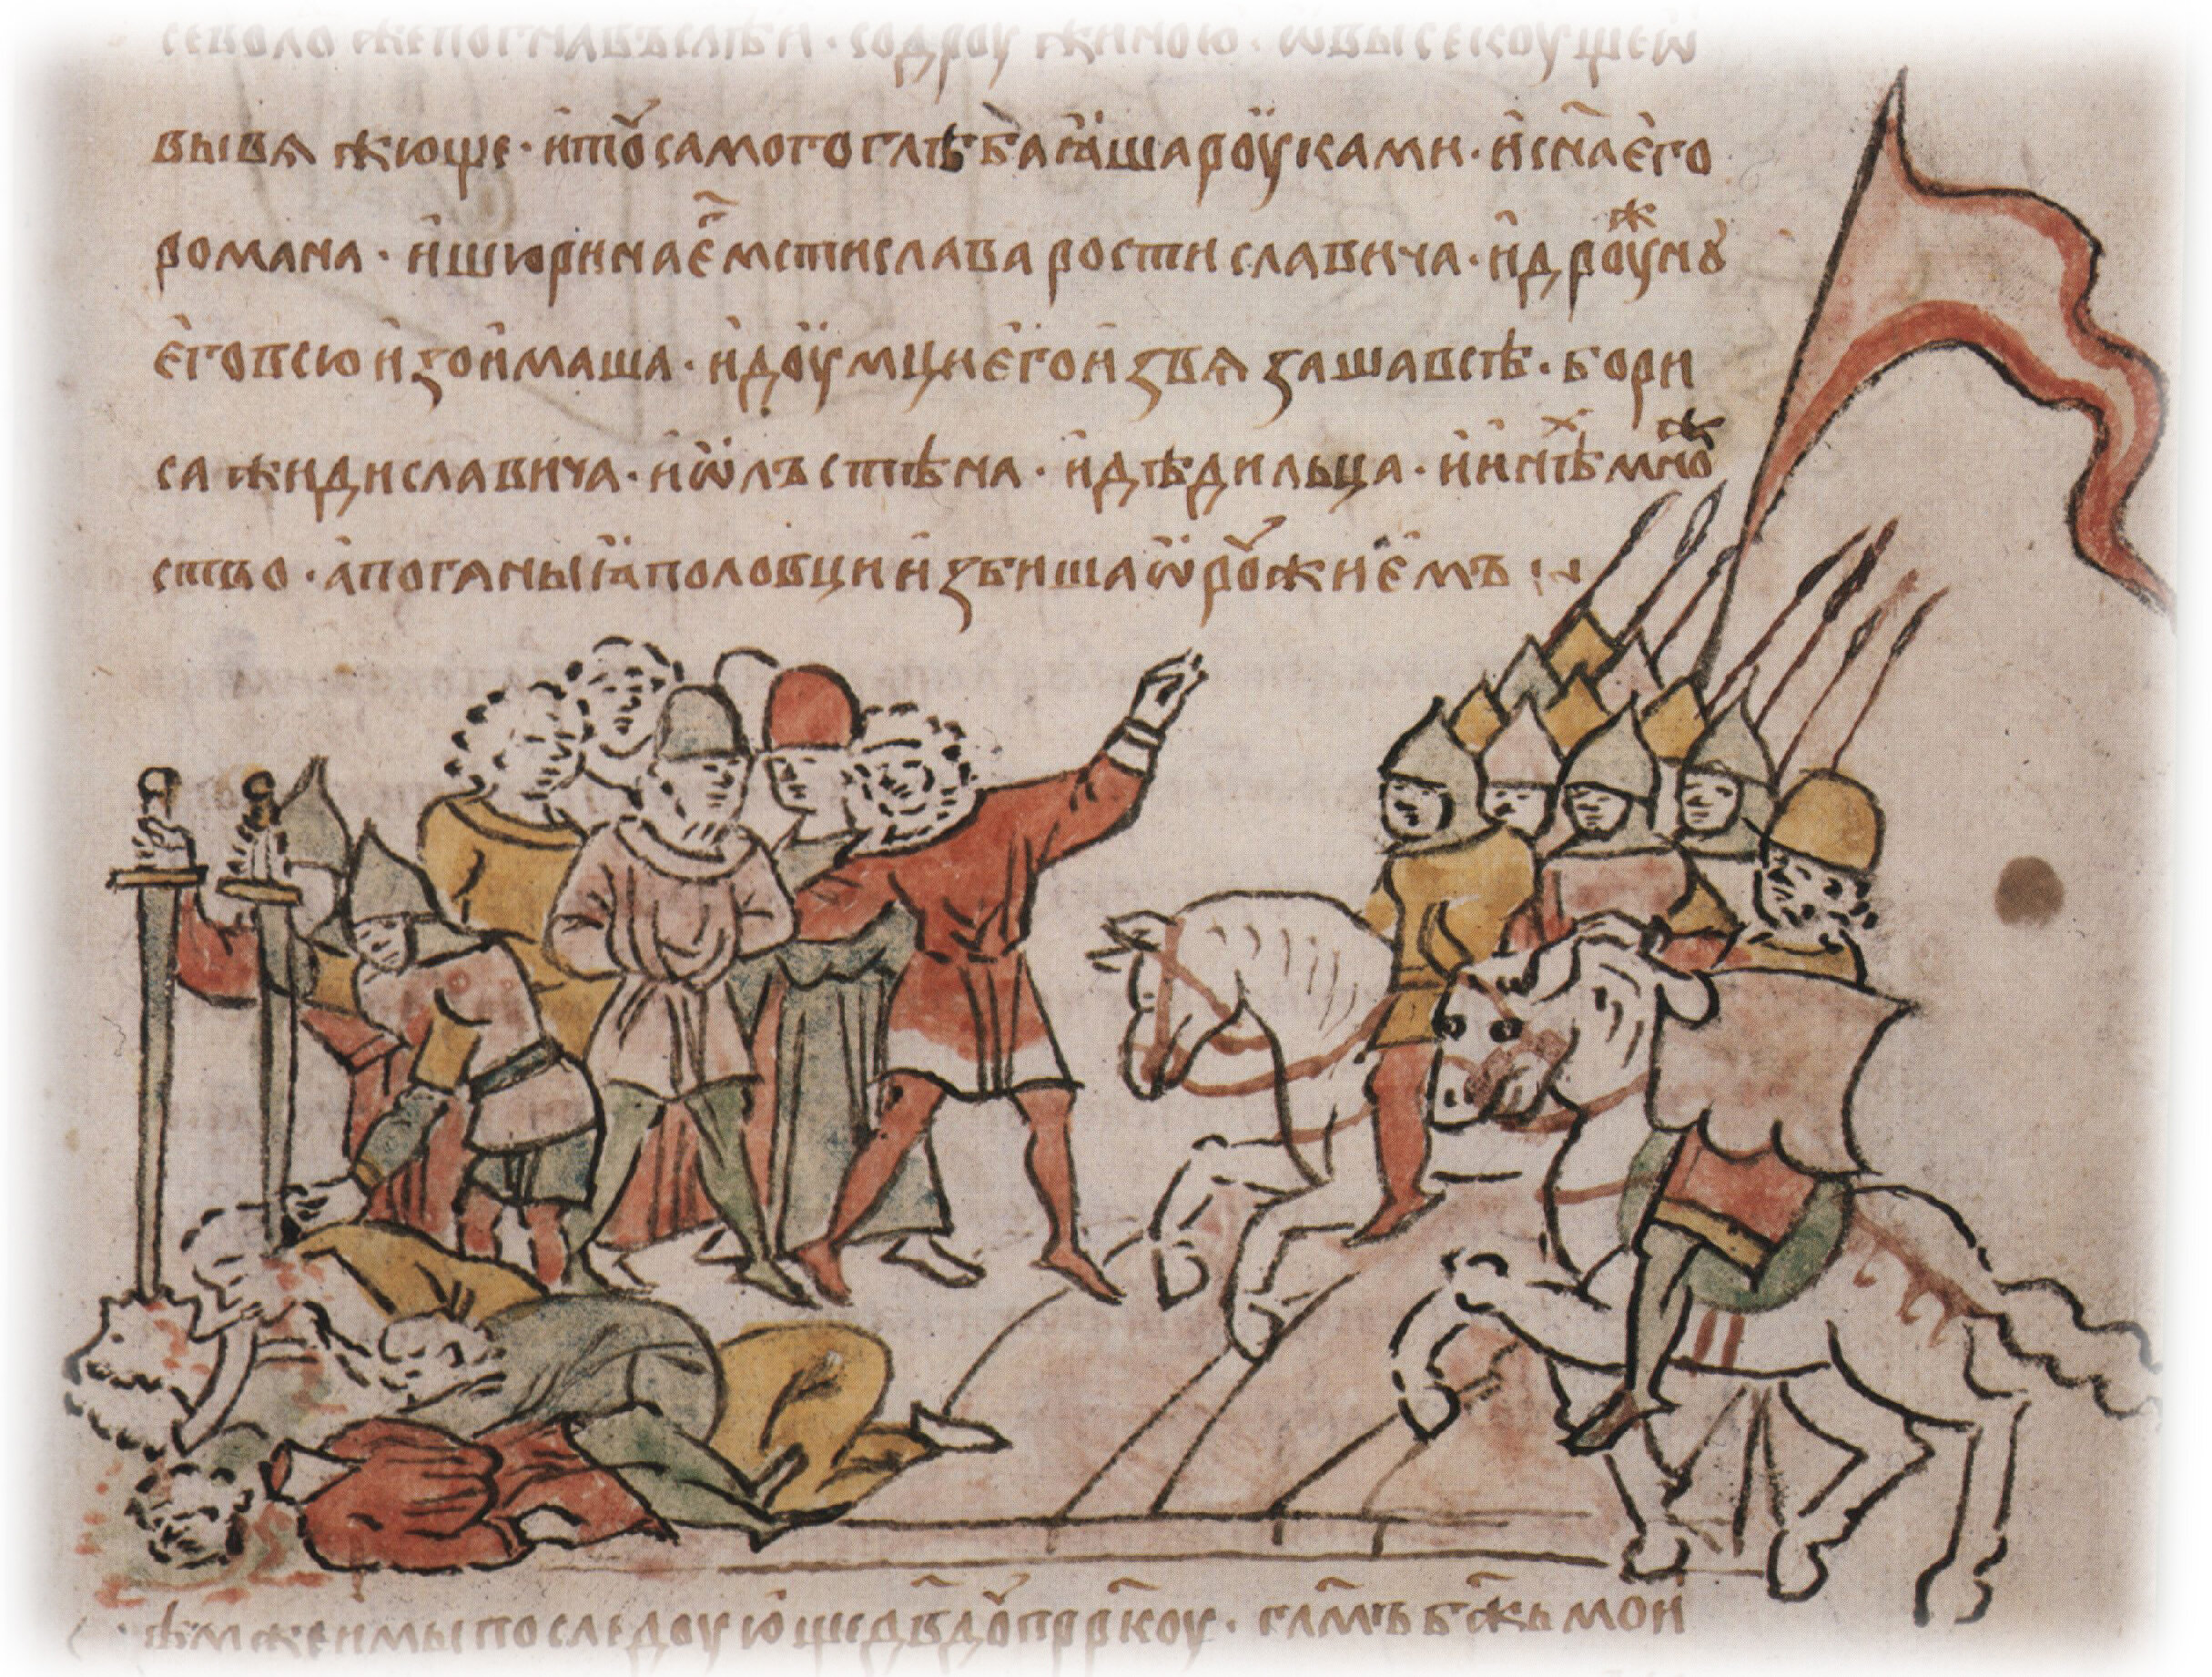 севоло же погнавъ слѣⷣ и · содроужиною · ѡвы секоуще ѡ
вы вяжюще · и тоу самого глѣба ꙗша роуками · и сн҃а его
романа · и шюрина е҃ мстислава ростиславича · и дроужⷤиноу
его всю изоимаша · и доумци его извязаша всѣ · бори
са жидиславича · и ѡлъстѣна · и дѣдильца · и инѣхⷯ множⷤ
ство · а поганыꙗ половци избиша ѡроужиемъ :~
ѣмже и мы последоующе дв҃дꙋ пррⷪ҇коу · гл҃мъ б҃жь мои